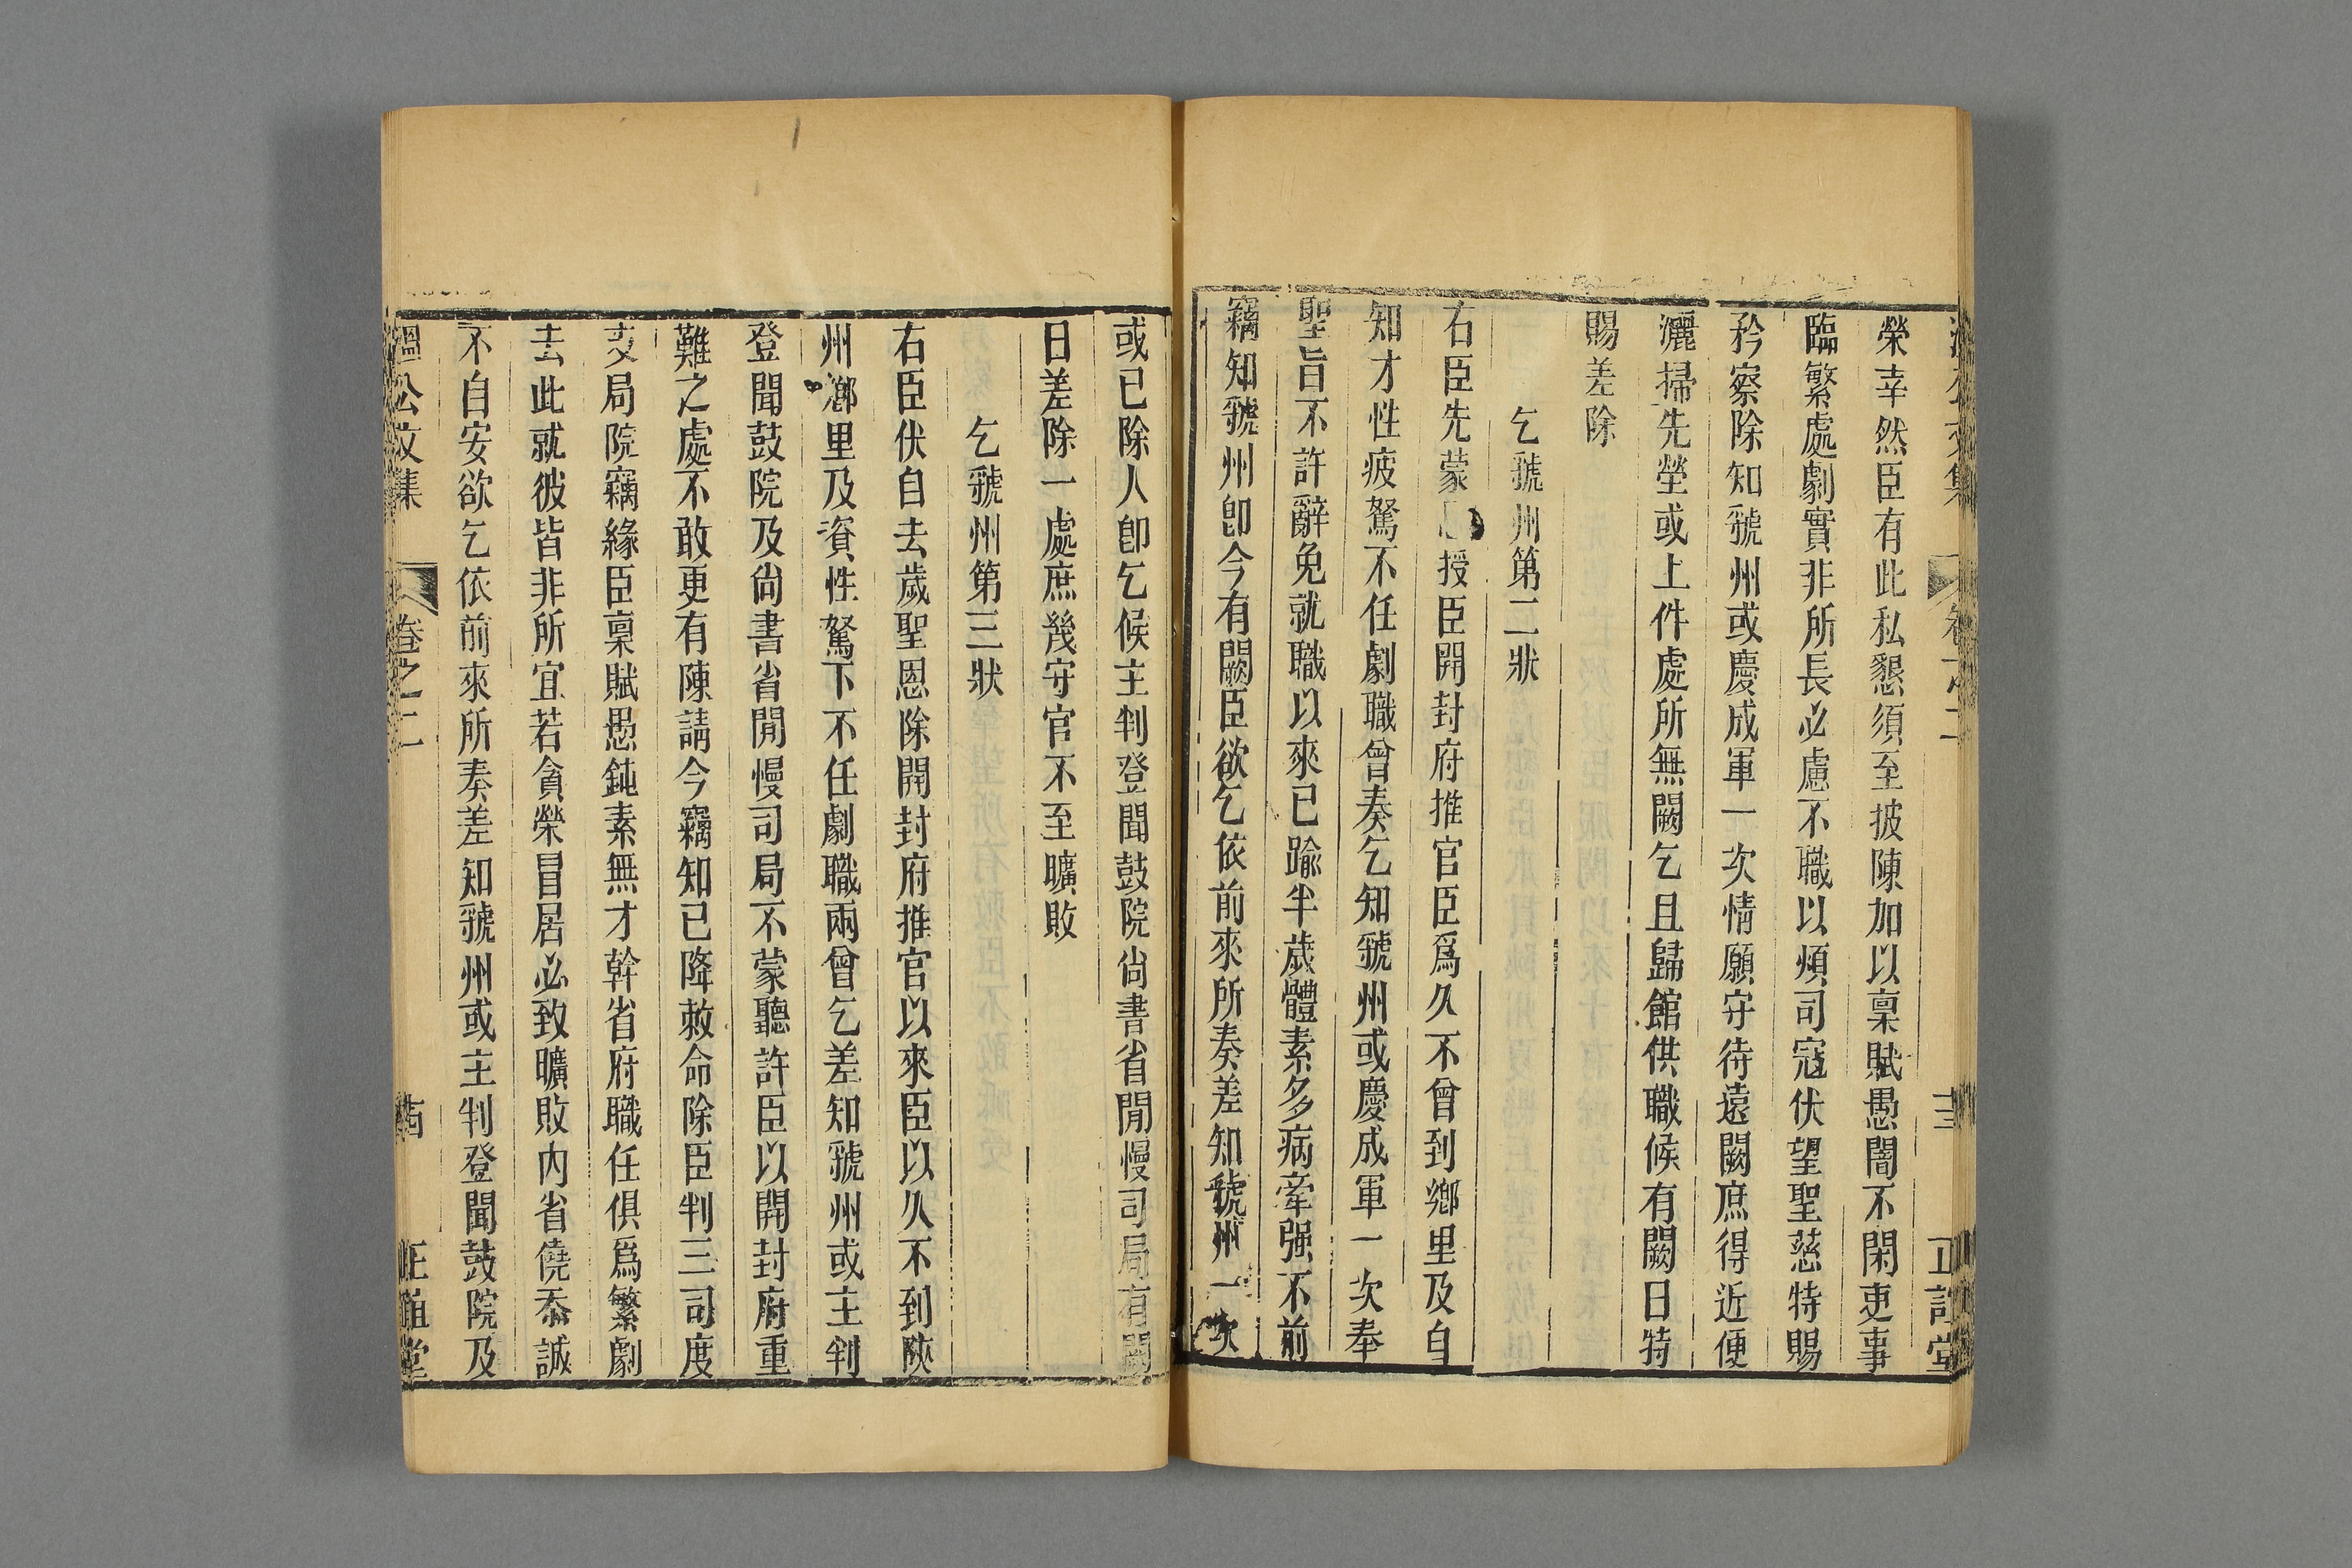 榮幸然臣有此私懇須至披陳加以稟賦愚闇不閑吏事
臨繁處劇實非所長必慮不職以煩司寇伏望聖慈特賜
矜察除知虢州或慶成軍一次情願守待遠闕庶得近便
灑掃先塋或上件處所無闕乞且歸館供職候有闕日特
賜差除
乞虢州第二狀
右臣先蒙授臣開封府推官臣爲久不曾到鄉里及自
知才性疲駑不任劇職曾奏乞知虢州或慶成軍一次奉
聖旨不許辭免就職以來已踰半歲體素多病牽强不前
竊知虢州卽今有闕臣欲乞依前來所奏差知虢州一次
或已除人卽乞候主判登聞鼓院尙書省閒慢司局有闕
日差除一處庶幾守官不至曠敗
乞虢州第三狀
右臣伏自去歲聖恩除開封府推官以來臣以久不到陝
州鄉里及資性駑下不任劇職兩曾乞差知虢州或主判
登聞鼓院及尙書省閒慢司局不蒙聽許臣以開封府重
難之處不敢更有陳請今竊知已降敕命除臣判三司度
支局院竊緣臣稟賦愚鈍素無才幹省府職任俱爲繁劇
去此就彼皆非所宜若貪榮冒居必致曠敗內省僥忝誠
不自安欲乞依前來所奏差知虢州或主判登聞鼓院及
溫公文集 卷之二 古 正誼堂